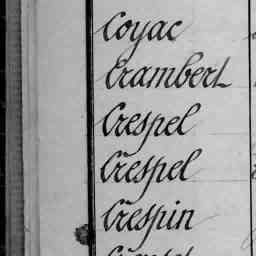 Coyac
Crambert
Crespel
Crespel
Crespin